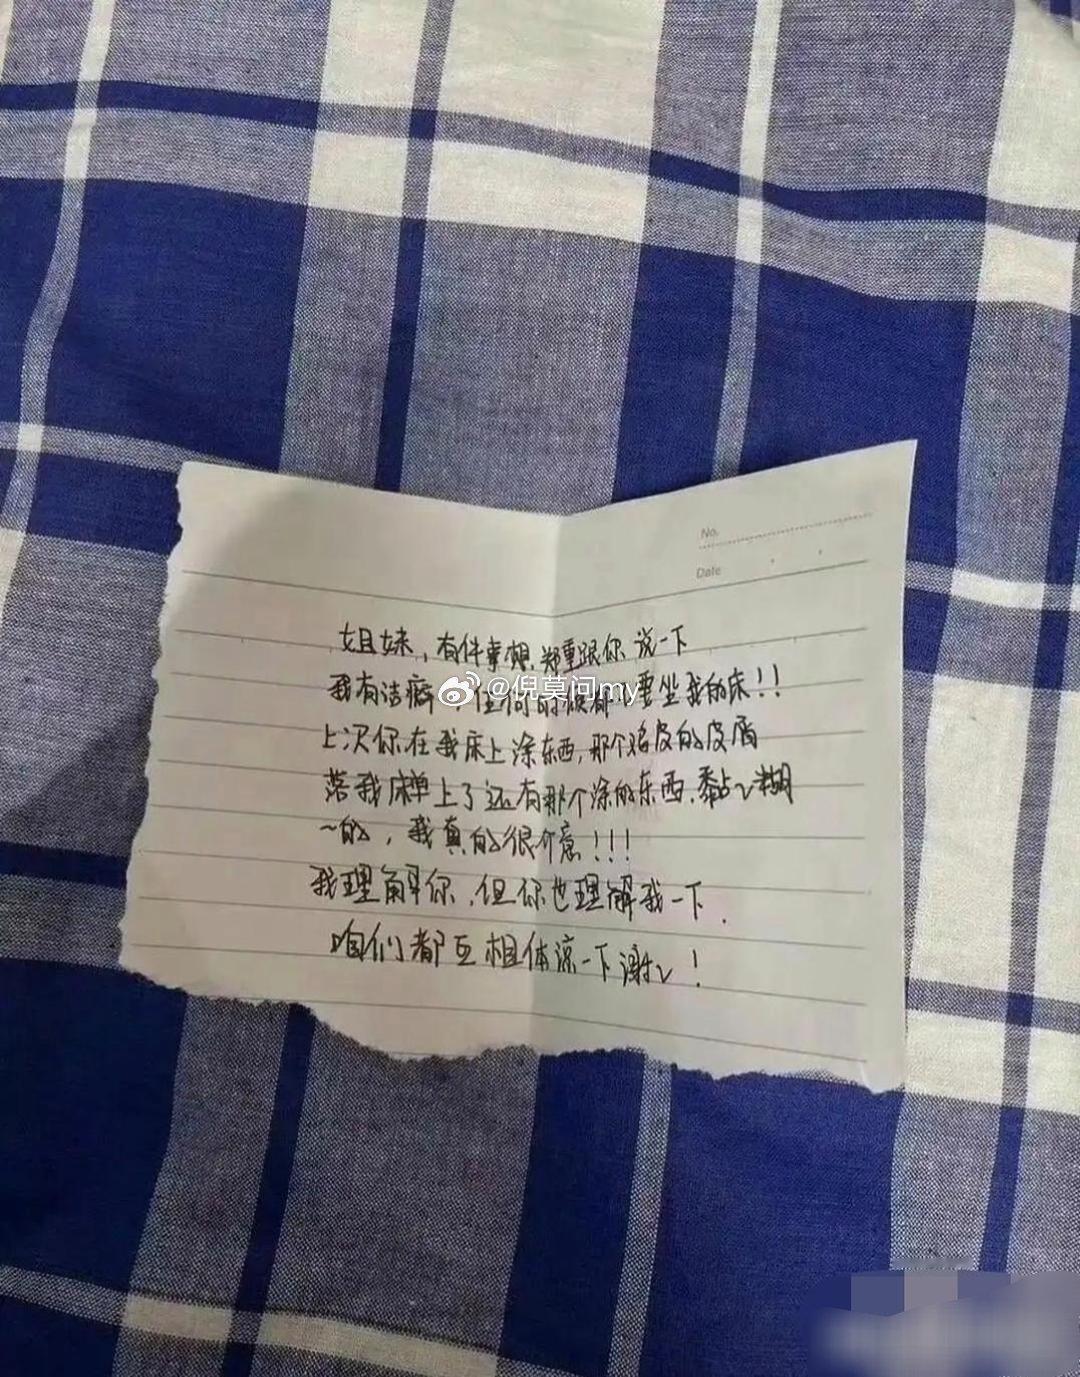 No.
Date
姐妹，有件事想郑重跟你说一下
我有洁癖，任何时候都不要坐我的床！！
@倪莫问my
上次你在我床上涂东西，那个鸡皮的皮屑
落我床单上了还有那个涂的东西，黏~糊
~的，我真的很介意！！！
我理解你，但你也理解我一下.
咱们都互相体谅一下谢~！